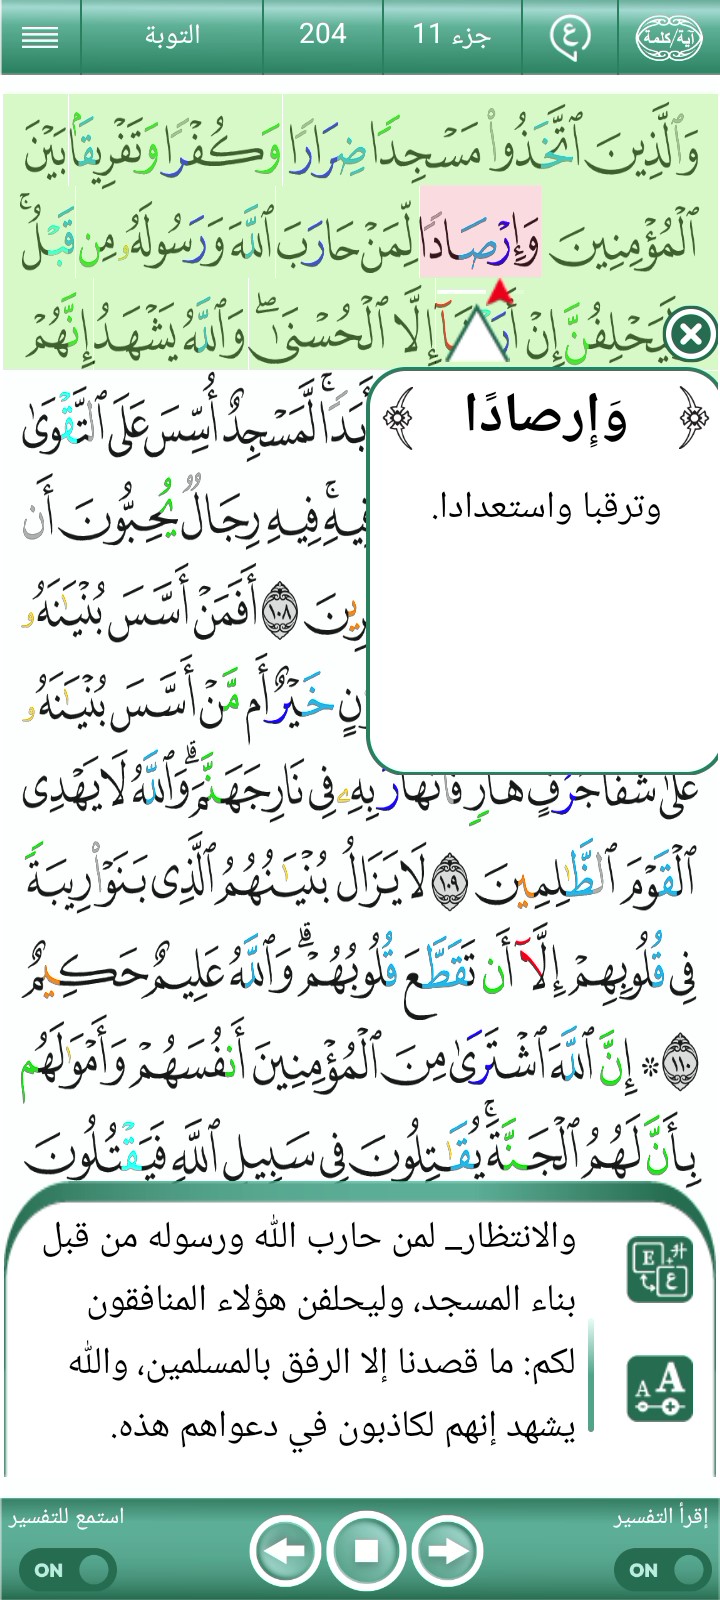 آية/كلمة ع جزء 11 204 التوبة
وَٱلَّذِينَ ٱتَّخَذُوا۟ مَسْجِدًا ضِرَارًا وَكُفْرًا وَتَفْرِيقًۢا بَيْنَ
ٱلْمُؤْمِنِينَ وَإِرْصَادًا لِّمَنْ حَارَبَ ٱللَّهَ وَرَسُولَهُۥ مِن قَبْلُ ۚ
إِنْ إِلَّا ٱلْحُسْنَىٰ ۖ وَٱللَّهُ يَشْهَدُ إِنَّهُمْ
وَإِرصادًا
وترقبا واستعدادا.
أَبَدًا ۚ لَّمَسْجِدٌ أُسِّسَ عَلَى ٱلتَّقْوَىٰ
فِيهِ ۚ فِيهِ رِجَالٌ يُحِبُّونَ أَن
١٠٨ أَفَمَنْ أَسَّسَ بُنْيَٰنَهُۥ
خَيْرٌ أَم مَّنْ أَسَّسَ بُنْيَٰنَهُۥ
عَلَىٰ شَفَا جُرُفٍ هَارٍ فَٱنْهَارَ بِهِۦ فِى نَارِ جَهَنَّمَ ۗ وَٱللَّهُ لَا يَهْدِى
ٱلْقَوْمَ ٱلظَّٰلِمِينَ ١٠٩ لَا يَزَالُ بُنْيَٰنُهُمُ ٱلَّذِى بَنَوْا۟ رِيبَةً
فِى قُلُوبِهِمْ إِلَّآ أَن تَقَطَّعَ قُلُوبُهُمْ ۗ وَٱللَّهُ عَلِيمٌ حَكِيمٌ
١١٠ * إِنَّ ٱللَّهَ ٱشْتَرَىٰ مِنَ ٱلْمُؤْمِنِينَ أَنفُسَهُمْ وَأَمْوَٰلَهُم
بِأَنَّ لَهُمُ ٱلْجَنَّةَ ۚ يُقَٰتِلُونَ فِى سَبِيلِ ٱللَّهِ فَيَقْتُلُونَ
والانتظار_ لمن حارب الله ورسوله من قبل
بناء المسجد، وليحلفن هؤلاء المنافقون
لكم: ما قصدنا إلا الرفق بالمسلمين، والله
يشهد إنهم لكاذبون في دعواهم هذه.
إقرأ التفسير استمع للتفسير
ON ON